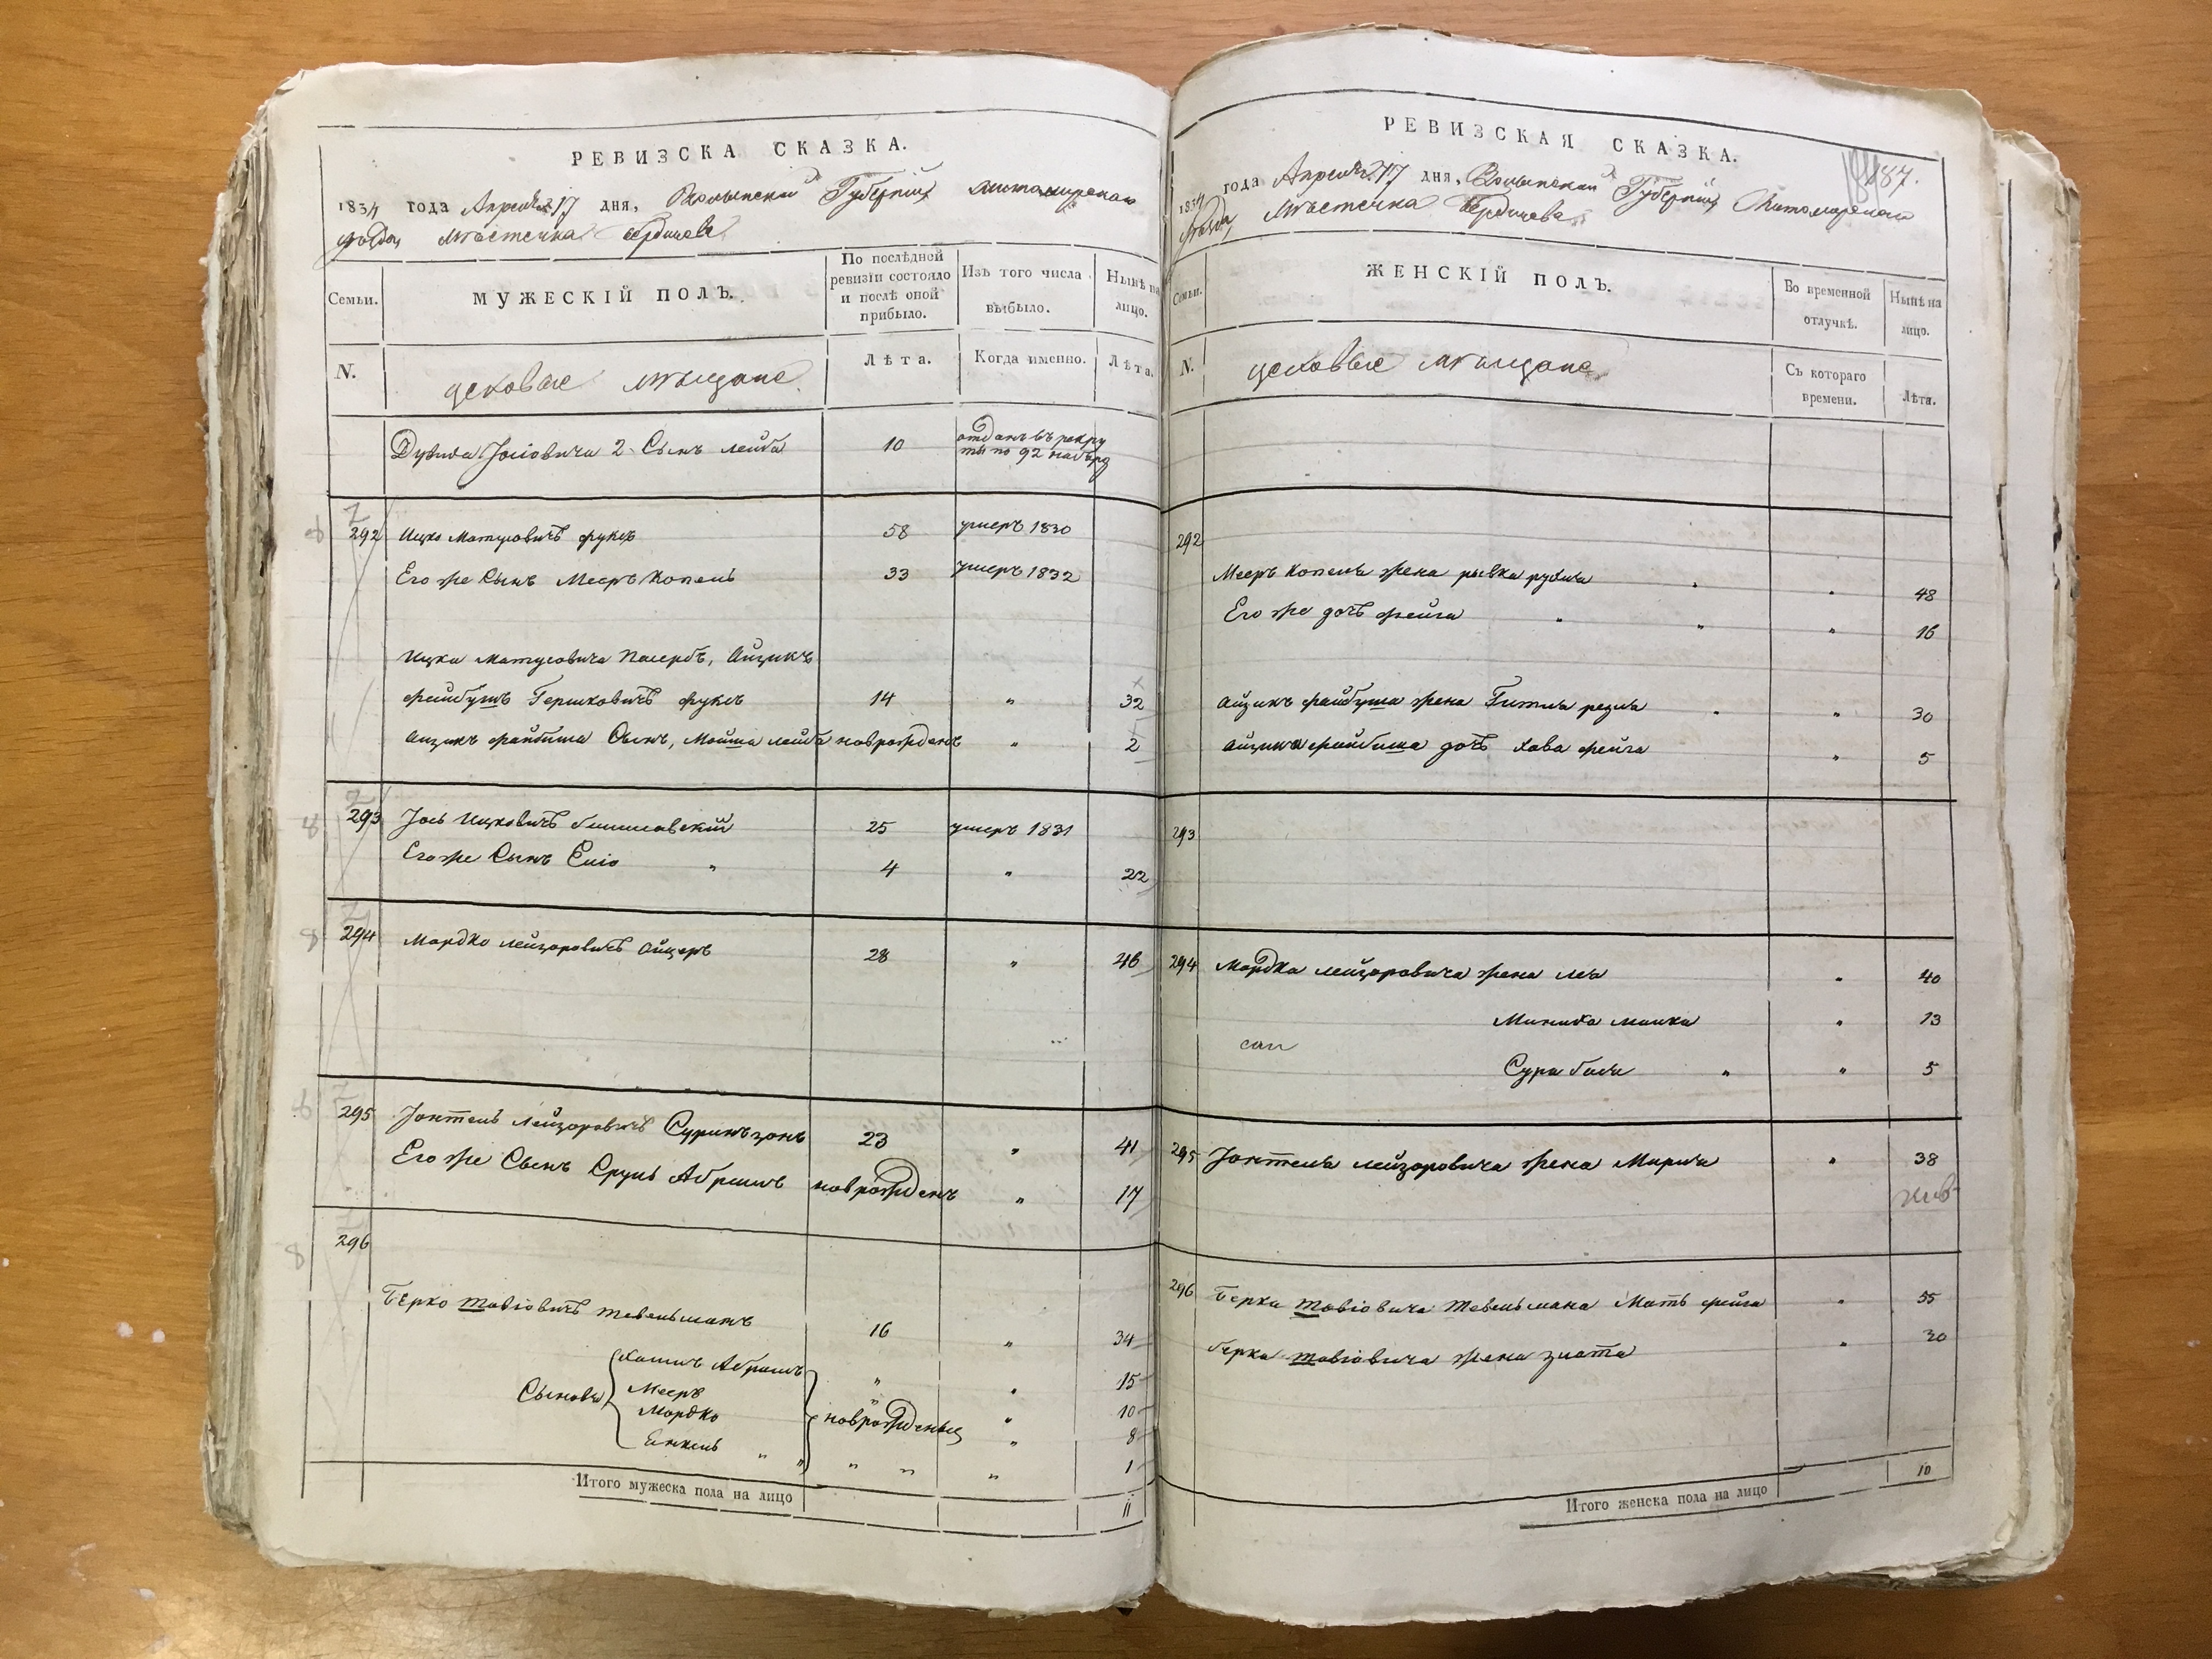 РЕВИЗСКА СКАЗКА.
1834 года Апреля 17 дня, Волынской Губерніи Житомирскаго
уѣзда Мѣстечка Бердичева
Семьи.
МУЖЕСКІЙ ПОЛЪ.
По послѣдней
ревизіи состояло
и послѣ оной
прибыло.
Изъ того числа
выбыло.
Нынѣ на
лицо.
N.
цеховые мѣщане
Лѣта.
Когда именно.
Лѣта.
Дувида Іосіовича 2 Сынъ лейба 10 отданъ въ рекру
ты по 92 набору
292 Ицко Матусовичъ фуксъ 58 умеръ 1830
Его же Сынъ Мееръ Копель 33 умеръ 1832
Ицка Матусовича Пасербъ, Айзикъ
файбушъ Гершковичъ фуксъ 14 " 32
Айзикъ файбиша Сынъ, Мойша лейба новрожденъ " 2
293 Іось Ицковичъ 25 умеръ 1831
Его же Сынъ " 4 " 22
294 Мордко лейзоровичъ 28 " 46
295 Іонтель лейзоровичъ Суринъзонъ 23 " 41
Его же Сынъ Сруль Абрамъ новрожденъ " 17
296
Берко товіовичъ тевельманъ 16 " 34
Сыновья
Хаимъ Абрамъ " " 15
Мееръ " 10
Мордко новрожденные " 8
Енкель " " " " " 1
Итого мужеска пола на лицо 11
РЕВИЗСКАЯ СКАЗКА.
187.
1834 года Апреля 17 дня, Волынской Губерніи Житомирскаго
уѣзда Мѣстечка Бердичева
Семьи.
ЖЕНСКІЙ ПОЛЪ.
Во временной
отлучкѣ.
Нынѣ на
лицо.
N.
цеховые мѣщане
Съ котораго
времени.
Лѣта.
292
Мееръ Копеля жена рывка рухля " " 48
Его же дочь фейга " " " 16
Айзикъ файбуша жена Гитля рейзля " " 30
Айзика файбиша дочь хава фейга " 5
293
294 Мордка лейзоровича жена лея " 40
малка " 13
Сура бася " " 5
295 Іонтеля лейзоровича жена Мирля " 38
296 Берка товіовича тевельмана Мать фейга " 55
берка товіовича жена злота " 30
10
Итого женска пола на лицо